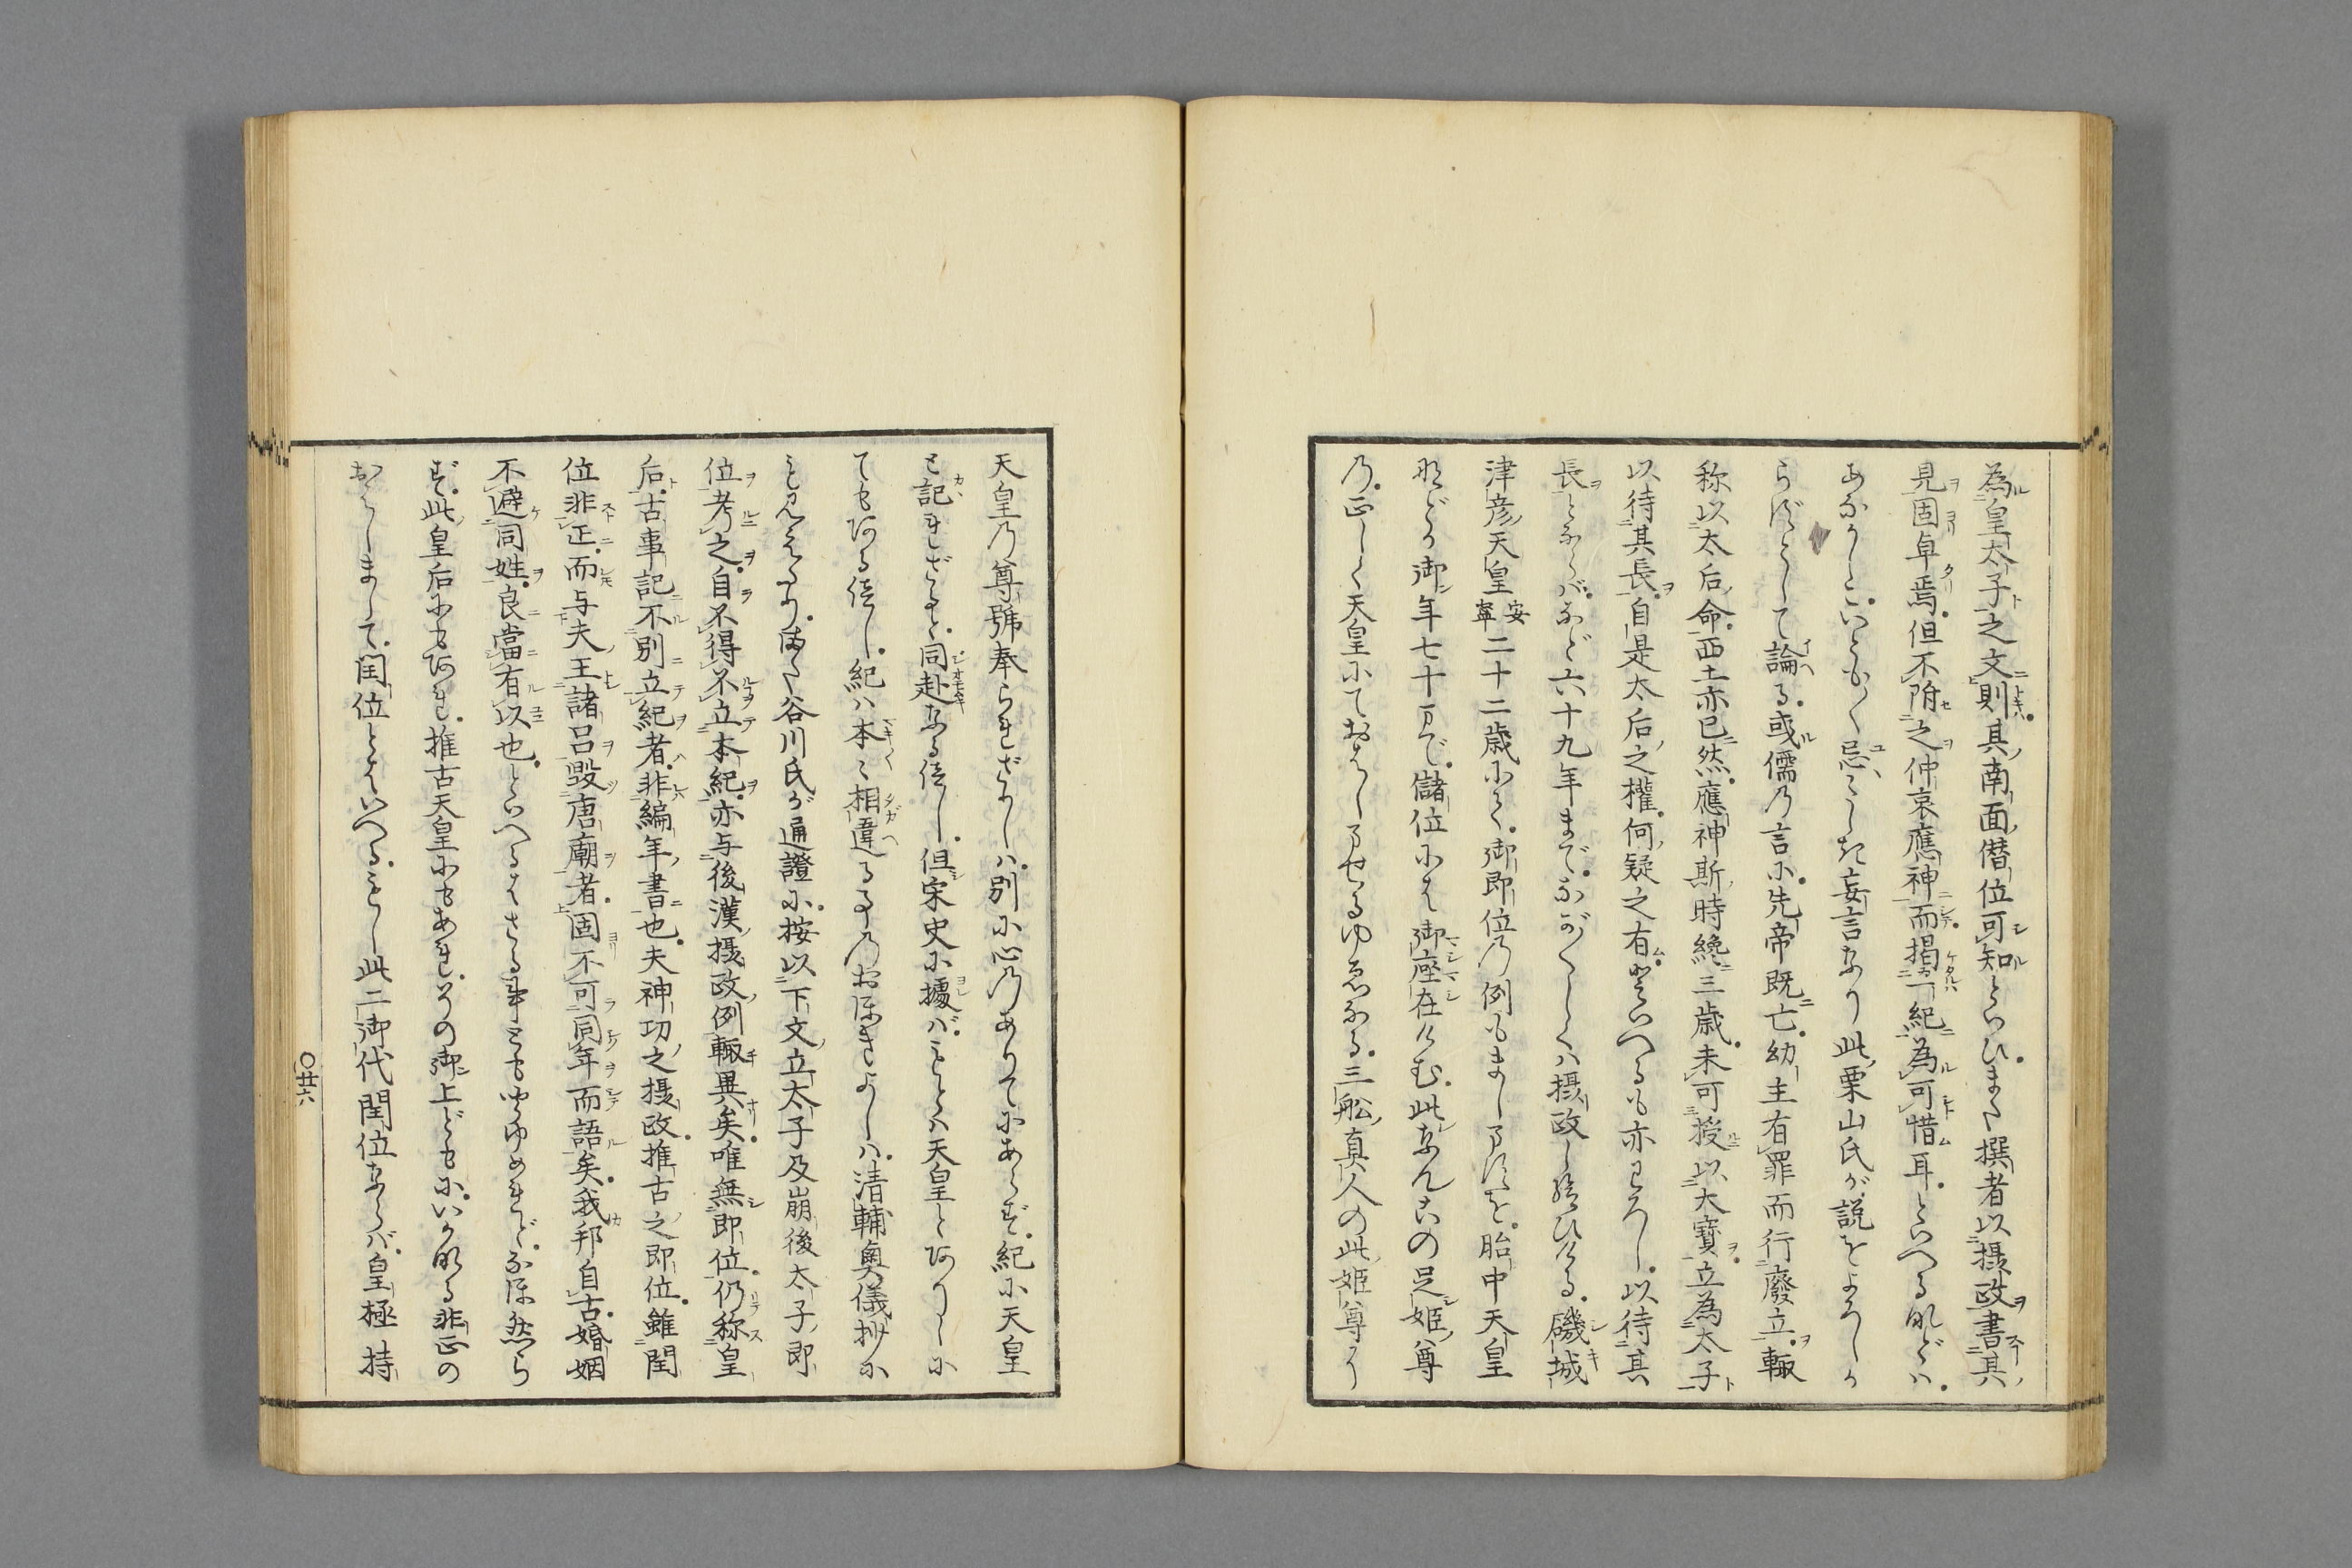 為皇太子之文則其南面僣位可知といひまた撰者以摂政書其
見固卓焉但不附之仲哀應神而掲一紀為可惜耳といへるなどハ
あなかしこいともかく忌ゝしき妄言なり此栗山氏が説をよろしか
らずとして論る或儒乃言に先帝既亡幼主有罪而行廢立輙
称以太后命西土亦已然應神斯時纔三歳未可授以大寶立為太子
以待其長自是太后之權何疑之有といへるも亦わろし以待其
長とならバなど六十九年までながくしくハ摂政し給ひける磯城
津彦天皇安寧二十二歳にて御即位乃例もましますを胎中天皇
などか御年七十まで儲位にハ御座在けむ此なんこの足姫尊
乃正しく天皇にておはしませるゆゑなる三舩真人の此姫尊より
天皇乃尊號奉らざりしハ別に心乃ありてにあらず紀に天皇
と記さざると同赴なるべし但宋史に據バもとハ天皇とありしに
てもあるべし紀ハ本々相違る事乃おほきよしハ清輔奥儀抄に
も見えたりまた谷川氏が通證に按以下文立太子及崩後太子即
位考之自不得不立本紀亦与後漢摂政例輙異矣唯無即位仍称皇
后古事記不別立紀者非編年書也夫神功之摂政推古之即位雖閏
位非正而与夫王諸呂毀唐廟者固不可同年而語矣我邦自古婚姻
不避同姓良當有以也といへるハさる事とも聞ゆめれどなほ然ら
ず此皇后にもあれ推古天皇にもあれその御上どもにいかなる非正の
おはしまして閏位とはいへるもし此二御代閏位ならバ皇極持
〇廿六